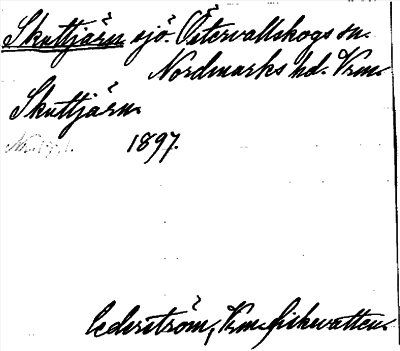 Skuttjärn sjö. Östervallskogs sn.
Nordmarks hd. Vrm.
Skuttjärn.
1897.
Cederström, Vrm. fiskevatten.